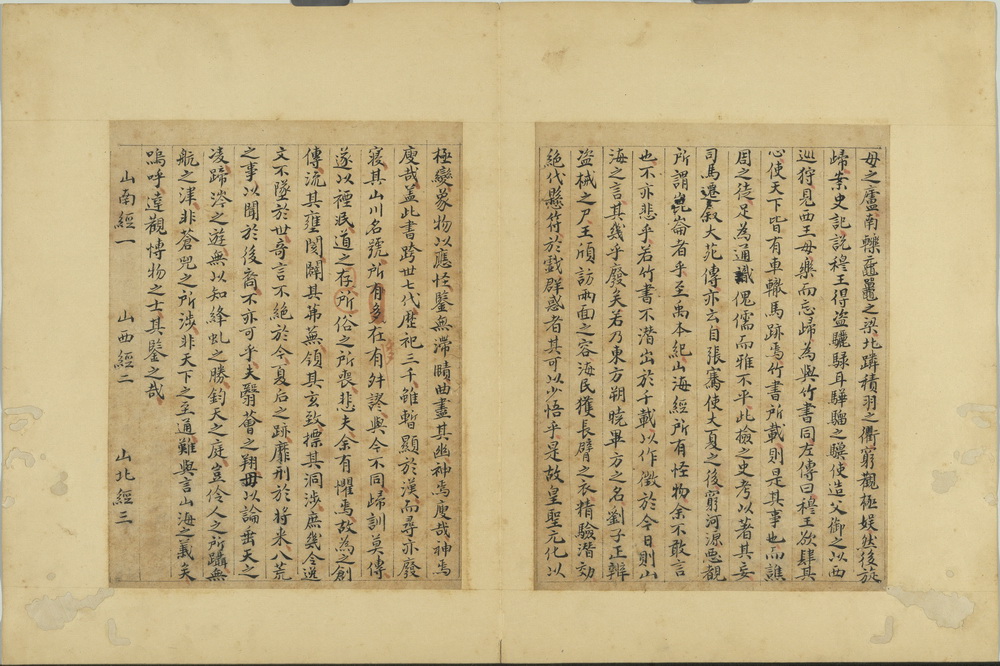 母之廬南轢黿鼉之梁北躡積羽之衢窮觀極娛然後旋
歸案史記説穆王得盜驪騄耳驊騮之驥使造父御之以西
巡狩見西王母樂而忘歸為與竹書同左傳曰穆王欲肆其
心使天下皆有車轍馬跡焉竹書所載則是其事也而譙
周之徒足為通識傀儒而雅不平此撿之史考以著其妄
司馬遷叙大苑傳亦云自張騫使大夏之後窮河源惡覩
所謂崑崙者乎至禹本紀山海經所有怪物余不敢言
也不亦悲乎若竹書不潛出於千載以作徵於今日則山
海之言其幾乎廢矣若乃東方朔曉畢方之名劉子正辨
盜械之尸王頎訪兩面之容海民獲長臂之衣精驗潛効
絶代懸符於戲群惑者其可以少悟乎是故皇聖元化以
極變象物以應怪鑒無滯賾曲盡其幽神焉廋哉神焉
廋哉盖此書跨世七代歴祀三千雖暫顯於漢而尋亦廢
寢其山川名號所有多在有舛謬與今不同歸訓莫傳
遂以禋泯道之存所俗之所喪悲夫余有懼焉故為之創
傳流其壅閡闢其茀無領其玄致摽其洞涉庶幾令逸
文不墜於世奇言不絶於今夏后之跡靡刊於將来八荒
之事以聞於後裔不亦可乎夫翳薈之翔毋以論垂天之
凌蹄涔之遊無以知絳虬之勝鈞天之庭豈伶人之所躡無
航之津非蒼兕之所涉非天下之至通難與言山海之義矣
嗚呼達觀博物之士其鑒之哉
山南經一　山西經二　山北經三